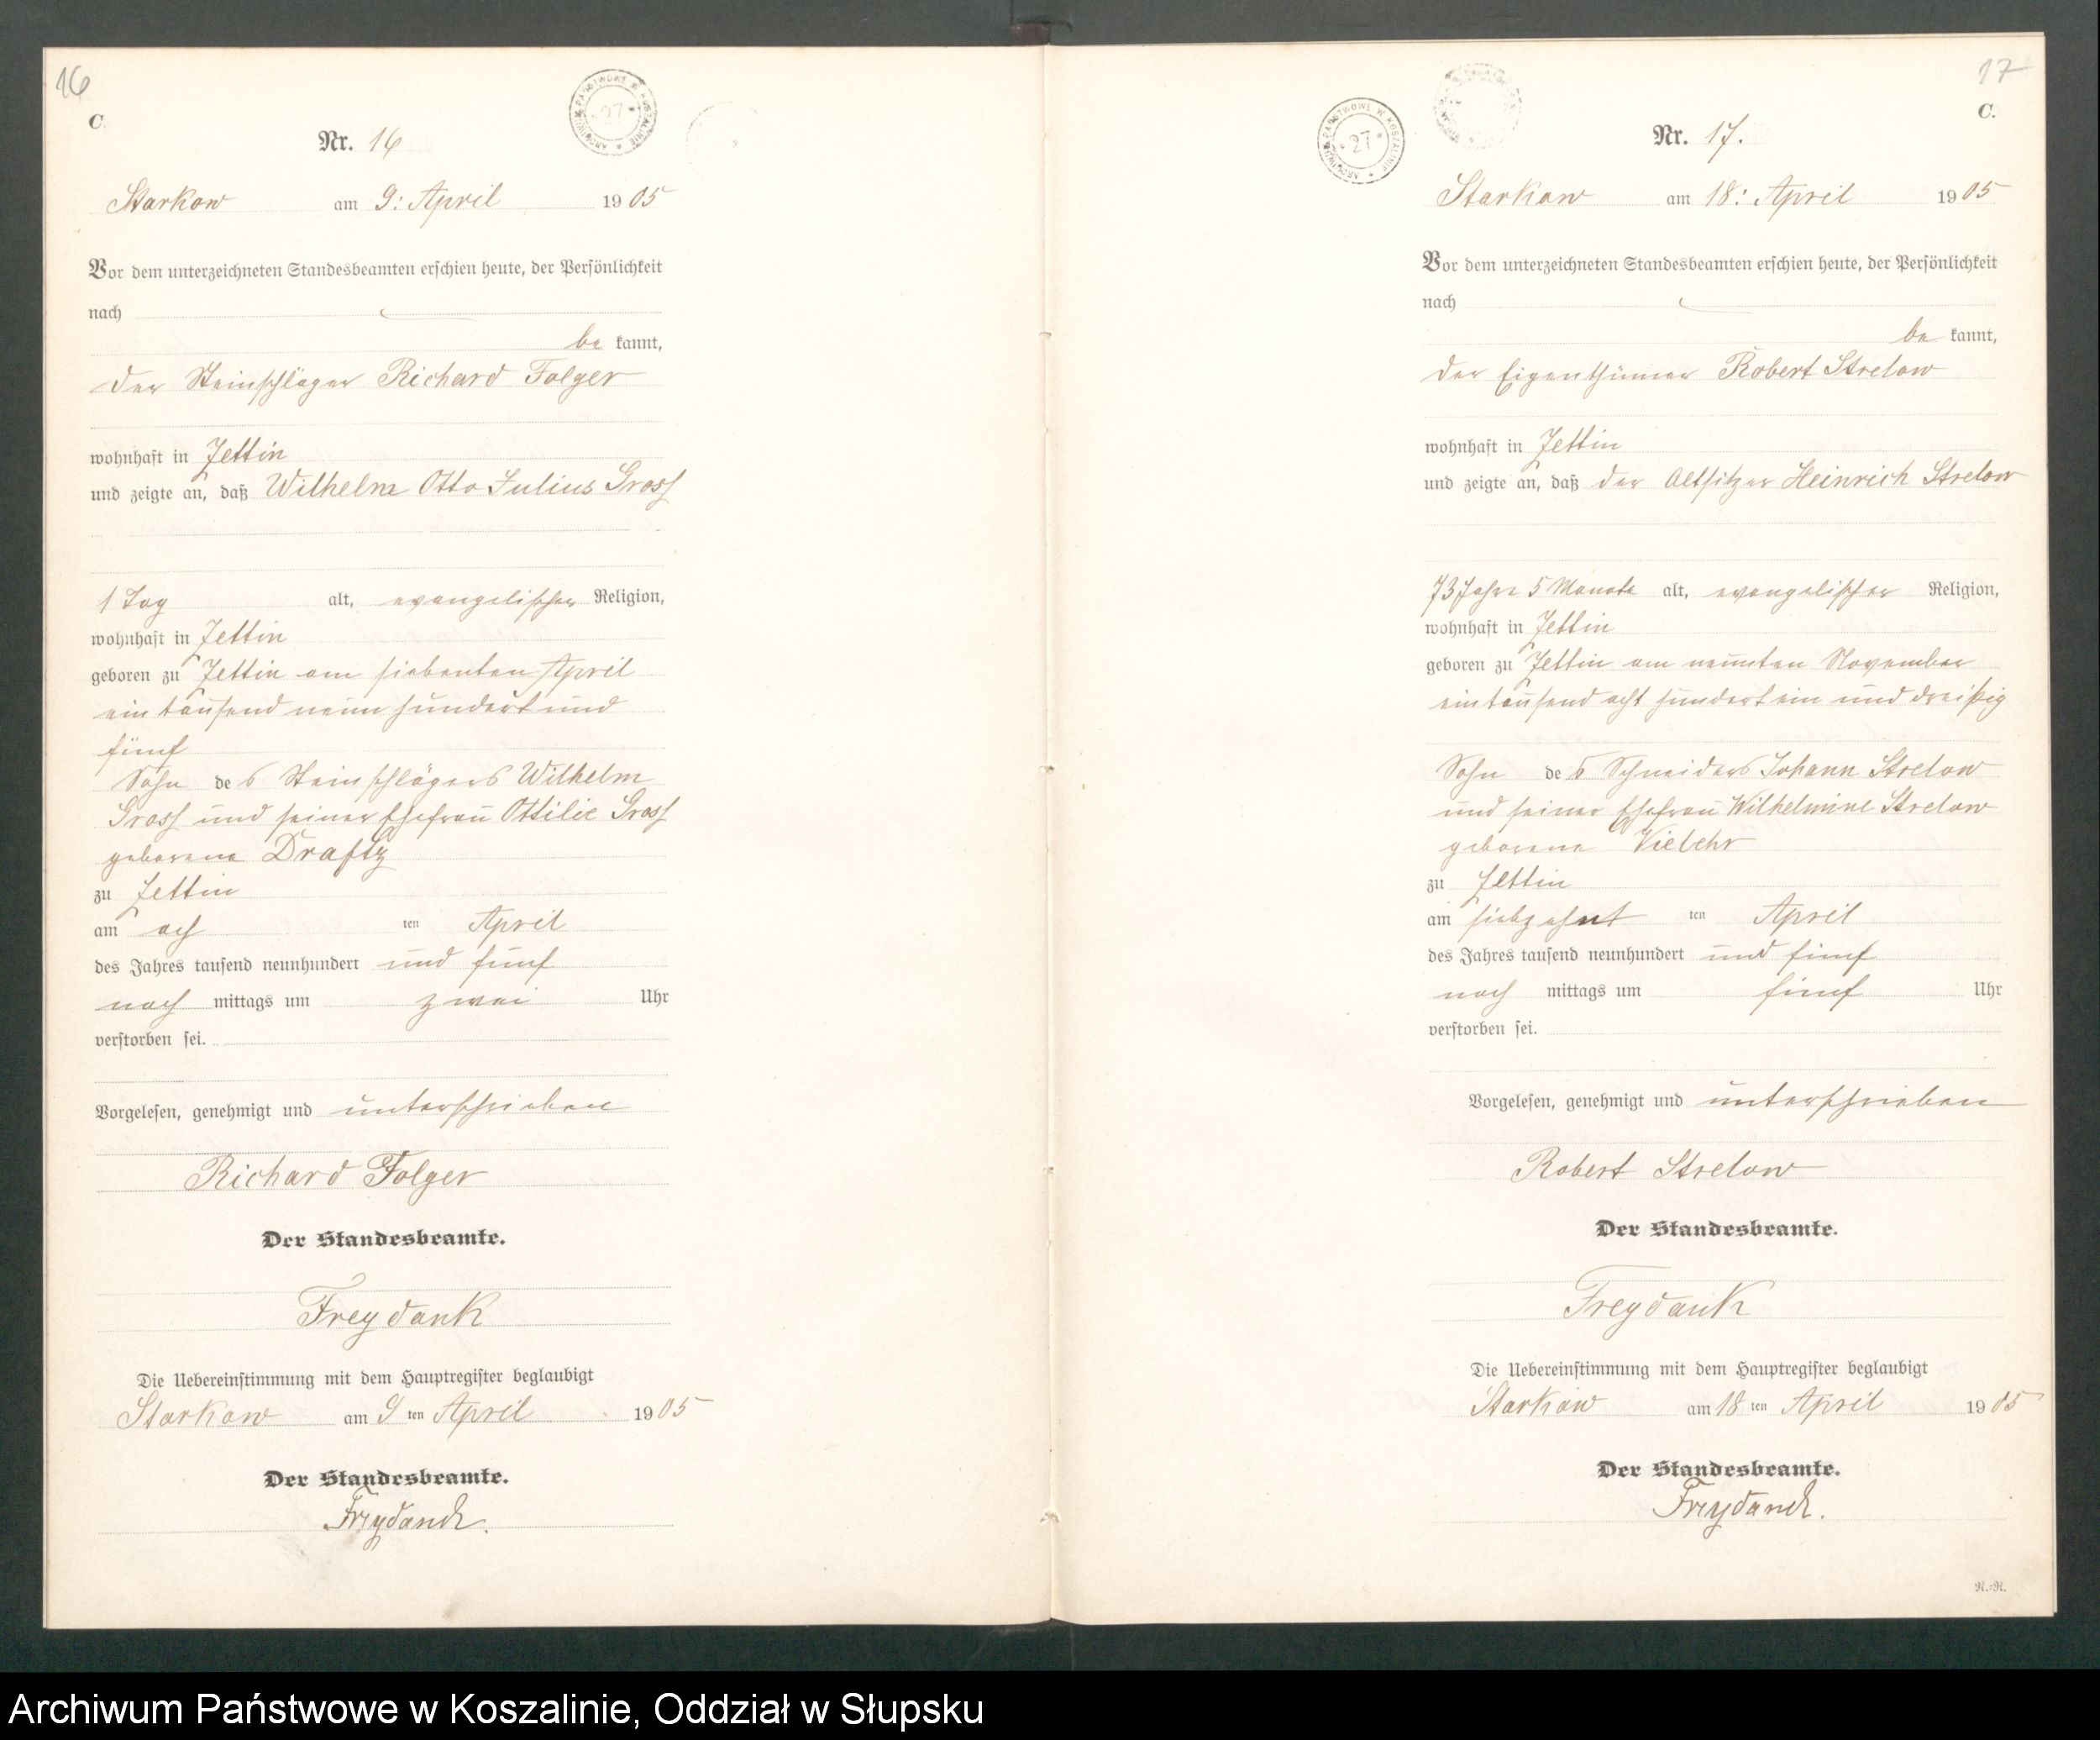 16
C.
Nr. 16
Starkow am 9: April 1905
Vor dem unterzeichneten Standesbeamten erschien heute, der Persönlichkeit
nach
be kannt,
der Steinschläger Richard Folger
wohnhaft in Jettin
und zeigte an, daß Wilhelm Otto Julius Gross
1 Tag alt, evangelischer Religion,
wohnhaft in Jettin
geboren zu Jettin am siebenten April
ein tausend neun hundert und
fünf
Sohn des Steinschlägers Wilhelm
Gross und seiner Ehefrau Ottilie Gross
geborene
zu Jettin
am ach ten April
des Jahres tausend neunhundert und fünf
nach mittags um zwei Uhr
verstorben sei.
Vorgelesen, genehmigt und unterschrieben
Richard Folger
Der Standesbeamte.
Freydank
Die Uebereinstimmung mit dem Hauptregister beglaubigt
Starkow am 9 ten April 1905
Der Standesbeamte.
Freydank.
ARCHIWUM PAŃSTWOWE W KOSZALINIE
27
17
C.
ARCHIWUM PAŃSTWOWE W KOSZALINIE
27
Nr. 17.
Starkow am 18: April 1905
Vor dem unterzeichneten Standesbeamten erschien heute, der Persönlichkeit
nach
be kannt,
der Eigenthümer Robert Strelow
wohnhaft in Jettin
und zeigte an, daß der Altsitzer Heinrich Strelow
73 Jahre 5 Monate alt, evangelischer Religion,
wohnhaft in Jettin
geboren zu Jettin am neunten November
eintausend acht hundert ein und dreißig
Sohn des Schneiders Johann Strelow
und seiner Ehefrau Wilhelmine Strelow
geborene Vielehr
zu Jettin
am siebzehnt ten April
des Jahres tausend neunhundert und fünf
nach mittags um fünf Uhr
verstorben sei.
Vorgelesen, genehmigt und unterschrieben
Robert Strelow
Der Standesbeamte.
Freydank
Die Uebereinstimmung mit dem Hauptregister beglaubigt
Starkow am 18 ten April 1905
Der Standesbeamte.
Freydank.
N.=N.
Archiwum Państwowe w Koszalinie, Oddział w Słupsku